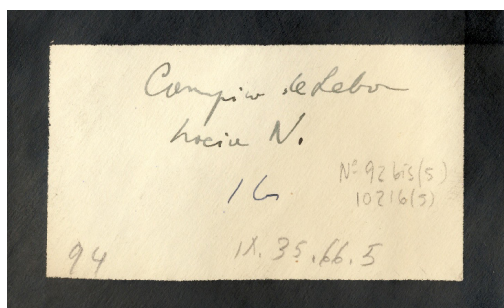 Campico de Lebor
hacia N.
16
Nº 92 bis(5)
10216(5)
94
IX.35.66.5